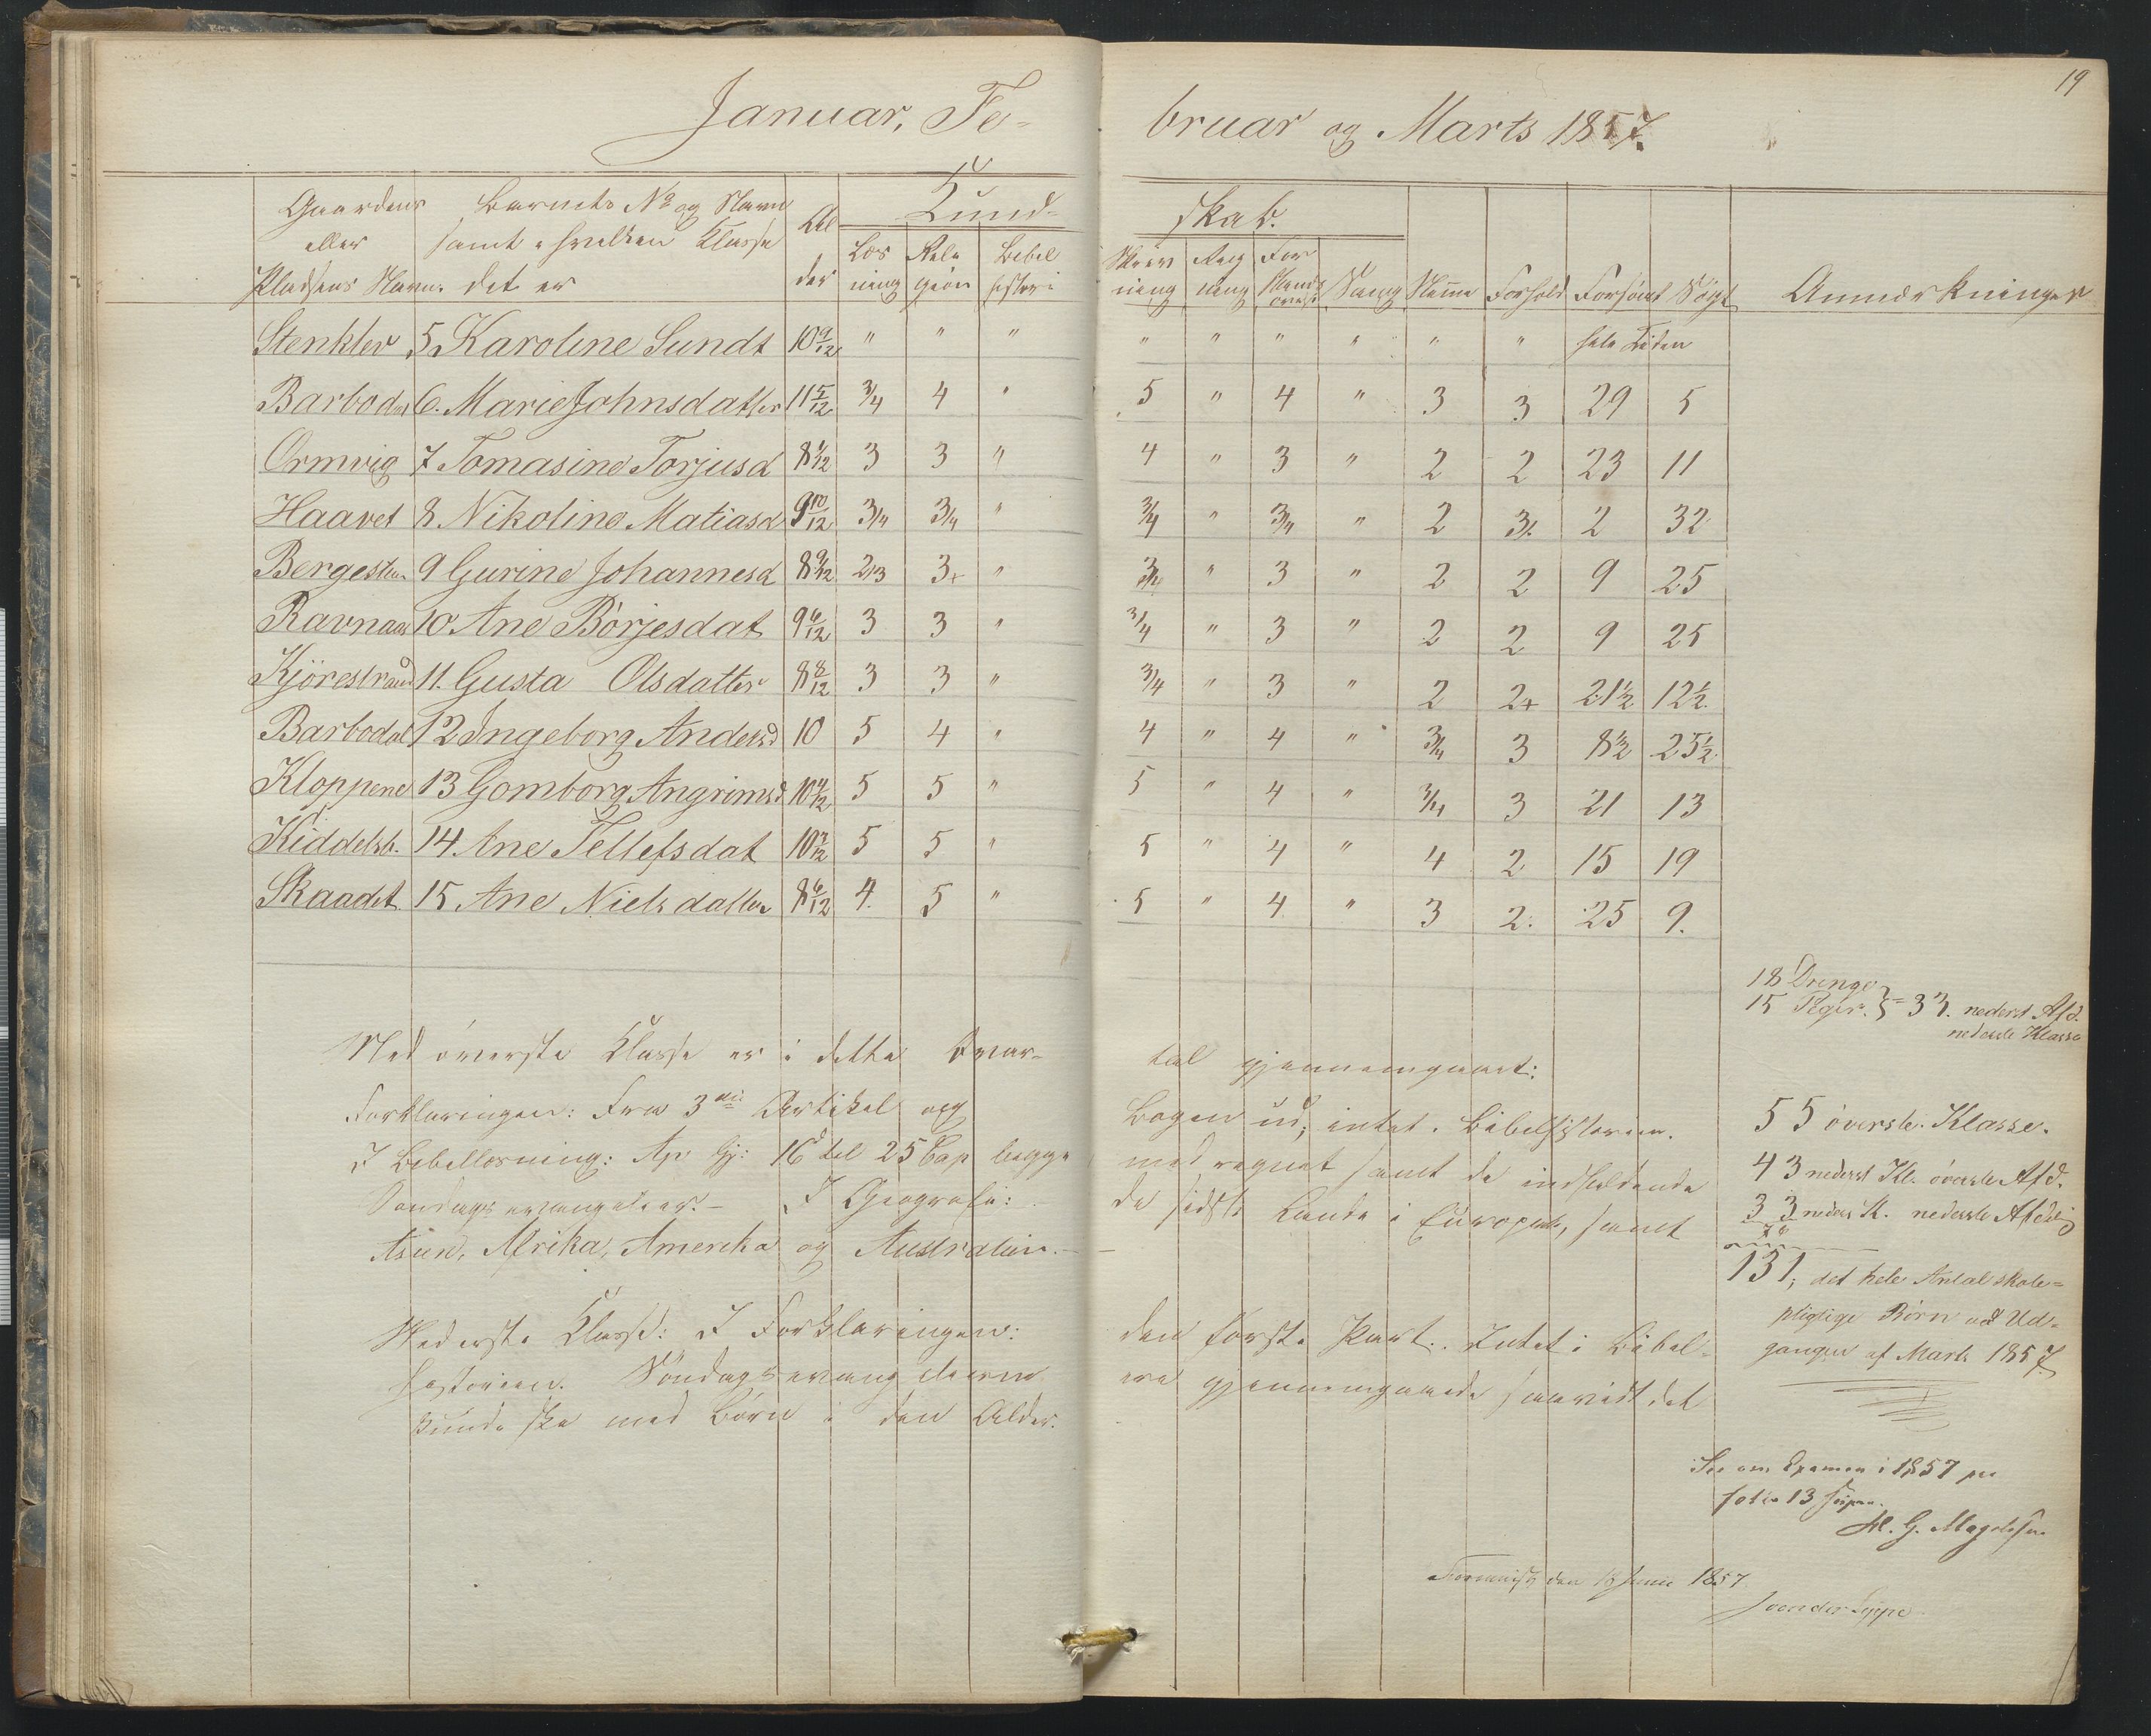 19
Januar, Februar og Marts 1857.
Gaardens eller Pladsens Navn. Barnets No og Navn samt i hvilken Klasse det er Alder Kundskab. Læsning Religion Bibelhistorie Skrivning Regning Forstandsøvelse Sang Flemme Forhold Forsømt Søgt Anmærkninger
Stenklev 5 Karoline Sundt 10 9/12 " " " " " " " " " hele Tiden
Barbodal 6. Marie Johnsdatter 11 5/12 3/4 4 " 5 " 4 " 3 3 29 5
Ormvig 7 Tomasine Torjusd 8 1/12 3 3 " 4 " 3 " 2 2 23 11
Haavet 8 Nikoline Matiasd 9 10/12 3/4 3/4 " 3/4 " 3/4 " 2 3/. 2 32
Bergesten 9 Gurine Johannesd 8 9/12 2/3 3+ " 3/4 " 3 " 2 2 9 25
Ravnaas 10 Ane Börjesdat 9 6/12 3 3 " 3/4 " 3 " 2 2 9 25
Kjörestrand 11. Gusta Olsdatter 8 8/12 3 3 " 3/4 " 3 " 2 2+ 21 1/2 12 1/2
Barbodal 12 Ingeborg Andersd 10 5 4 " 4 " 4 " 3/4 3 8 1/2 25 1/2
Kloppene 13 Gomborg Angrimsd 10 4/12 5 5 " 5 " 4 " 3/4 3 21 13
Kiddelsb. 14 Ane Tellefsdat 10 3/12 5 5 " 5 " 4 " 4 2 15 19
Skaadet 15 Ane Nielsdatter 8 6/12 4. 5 " 5 " 4 " 3 2. 25 9.
18 Drenge
15 Piger. } = 33. nederst Afd.
nederste Klasse
Med överste Klasse er i dette Kvartal gjennemgaaet:
Forklaringen: Fra 3die Artikel og Bogen ud; intet i Bibelhistorien.
I Bibellæsning: Ap Gj: 16d til 25 Cap begge medregnet samt de indfaldende
Söndags evangelier. – I Geografi: de sidste Lande i Europa, samt
Asien, Afrika, Amerika og Australien. –
Nederste Klasse: I Forklaringen: den förste Part. Intet i Bibel-
historien. Söndagsevangelierne ere gjennemgaaede saavidt det
kunde ske med Börn i den Alder.
55 överste. Klasse.
43 nederst Kl. överste Afd.
33 neders K. nederste Afdelig
131, det hele Antal skole-
pligtige Börn ved Ud-
gangen af Marts 1857.
See om Examen i 1857 paa
folio 13 supra.
Foreviist den 18 Junii 1857